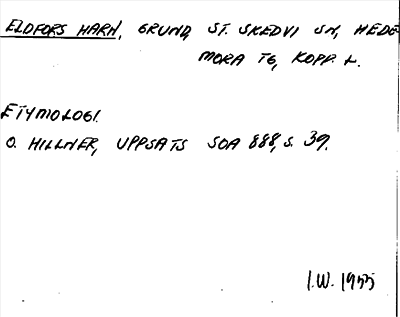 ELDFORS HARN, GRUND, ST. SKEDVI SN, HEDE
MORA TG, KOPP. L.
ETYMOLOGI.
O. HILLNER, UPPSATS SOA 888, S. 39.
I.W. 1955